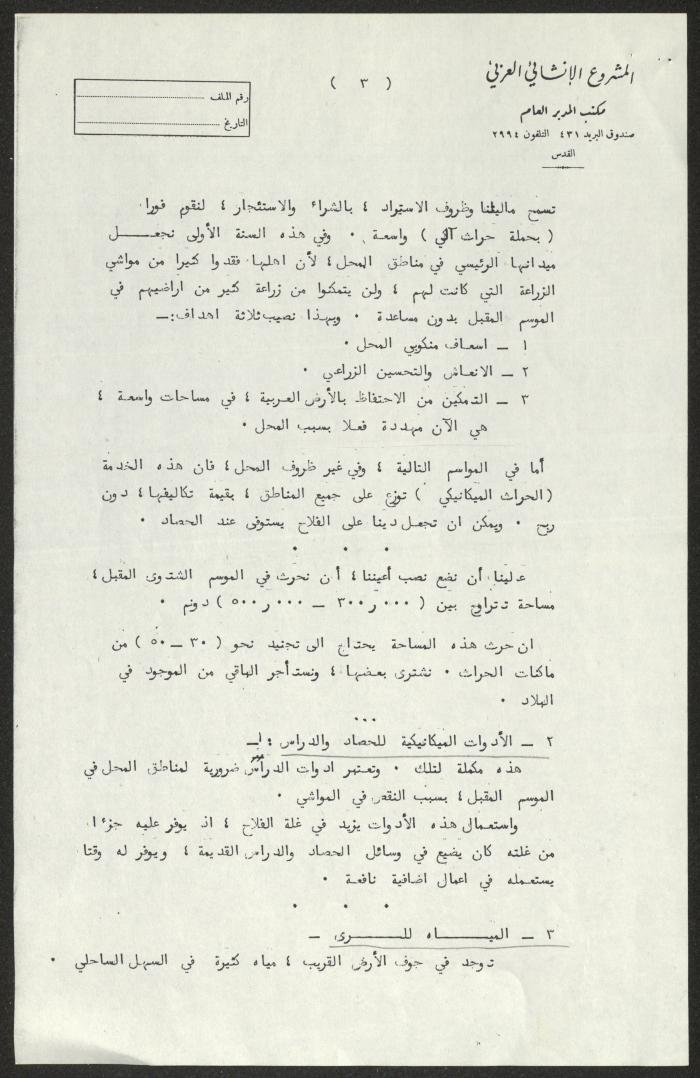 المشروع الإنشائي العربي
مكتب المدير العام
صندوق البريد ٤٣١ التلفون ٢٩٩٤
القدس
( ٣ )
رقم الملف
التاريخ
تسمح ماليتنا وظروف الاستيراد ٤ بالشراء والاستئجار ٤ لنقوم فورا
( بحملة حراث آلي ) واسعة ٠ وفي هذه السنة الأولى نجعل
ميدانها الرئيسي في مناطق المحل ٤ لأن اهلها فقدوا كثيرا من مواشي
الزراعة التي كانت لهم ٤ ولن يتمكنوا من زراعة كثير من اراضيهم في
الموسم المقبل بدون مساعدة ٠ وبهذا نصيب ثلاثة اهداف :ـ
١ ـ اسعاف منكوبي المحل ٠
٢ ـ الانعاش والتحسين الزراعي ٠
٣ ـ التمكين من الاحتفاظ بالأرض العربية ٤ في مساحات واسعة ٤
هي الآن مهددة فعلا بسبب المحل ٠
أما في المواسم التالية ٤ وفي غير ظروف المحل ٤ فان هذه الخدمة
( الحراث الميكانيكي ) توزع على جميع المناطق ٤ بقيمة تكاليفها ٤ دون
ربح ٠ ويمكن ان تجعل دينا على الفلاح يستوفى عند الحصاد ٠
٠ ٠ ٠
علينا أن نضع نصب أعيننا ٤ أن نحرث في الموسم الشتوى المقبل ٤
مساحة تتراوح بين ( ٣٠٠ر٠٠٠ ـ ٥٠٠ر٠٠٠ ) دونم ٠
ان حرث هذه المساحة يحتاج الى تجنيد نحو ( ٣٠ ـ ٥٠ ) من
ماكنات الحراث ٠ نشترى بعضها ٤ ونستأجر الباقي من الموجود في
البلاد ٠
٠٠٠
٢ ـ الأدوات الميكانيكية للحصاد والدراس :ـ
هذه مكملة لتلك ٠ وتعتبر ادوات الدراس ضرورية لمناطق المحل في
الموسم المقبل ٤ بسبب النقص في المواشي ٠
واستعمال هذه الأدوات يزيد في غلة الفلاح ٤ اذ يوفر عليه جزءا
من غلته كان يضيع في وسائل الحصاد والدراس القديمة ٤ ويوفر له وقتا
يستعمله في اعمال اضافية نافعة ٠
٠ ٠ ٠
٣ ـ الميـاه للـرى ـ
توجد في جوف الأرض القريب ٤ مياه كثيرة في السهل الساحلي ٠